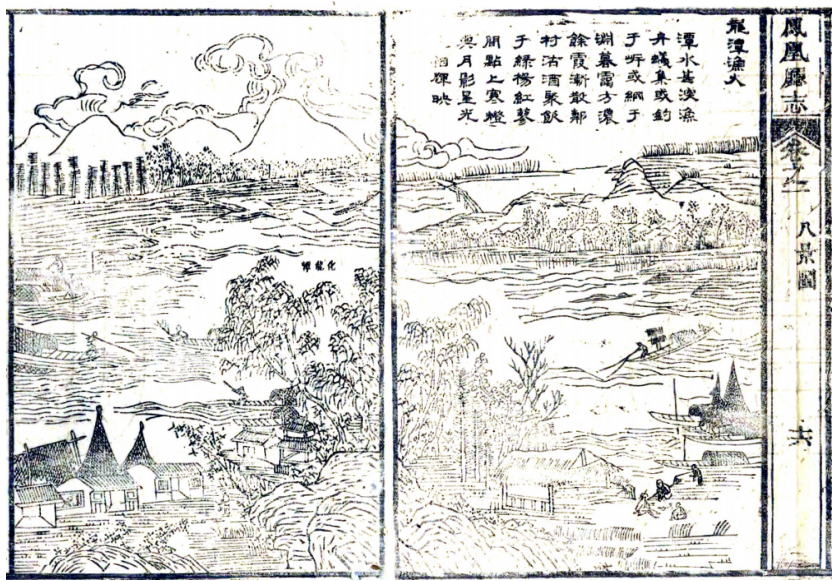 鳳凰廳志
卷之一
八景圖
十六
龍潭漁火
潭水甚深漁
舟蟻集或釣
于 或網于
淵暮靄方濃
餘霞漸散鄰
村沽酒聚飲
于綠楊紅蓼
間點上寒燈
與月影星光
相輝映
化龍潭